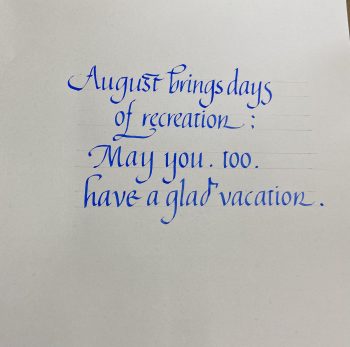 August brings days
of recreation :
May you . too .
have a glad vacation .